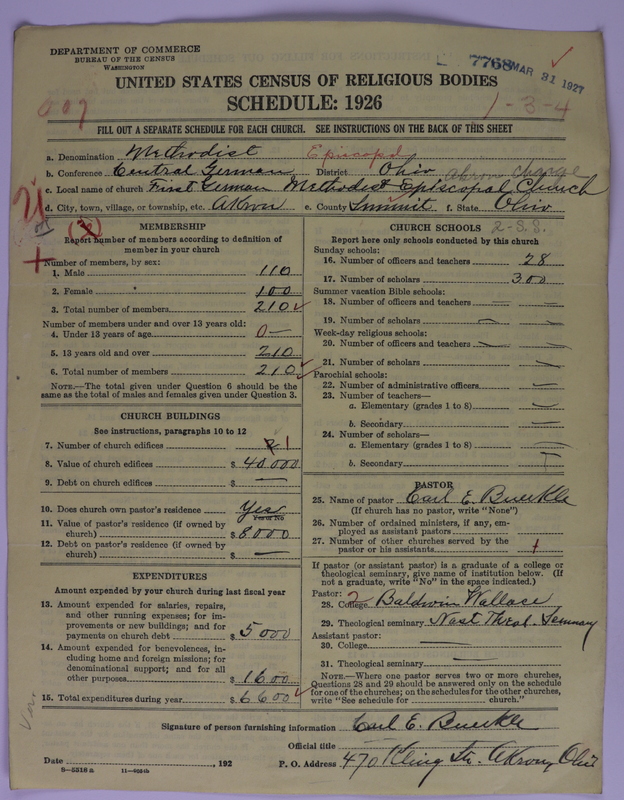 DEPARTMENT OF COMMERCE
BUREAU OF THE CENSUS
WASHINGTON
7768 MAR 31 1927
UNITED STATES CENSUS OF RELIGIOUS BODIES
SCHEDULE: 1926
1-3-4
FILL OUT A SEPARATE SCHEDULE FOR EACH CHURCH. SEE INSTRUCTIONS ON THE BACK OF THIS SHEET
a. Denomination Methodist Episcopal
b. Conference Central German District Ohio Akron Charge
c. Local name of church First German Methodist Episcopal Church
d. City, town, village, or township, etc. Akron e. County Summit f. State Ohio
MEMBERSHIP
Report number of members according to definition of
member in your church
Number of members, by sex:
1. Male 110
2. Female 100
3. Total number of members 210
Number of members under and over 13 years old:
4. Under 13 years of age 0
5. 13 years old and over 210
6. Total number of members 210
NOTE.—The total given under Question 6 should be the
same as the total of males and females given under Question 3.
CHURCH BUILDINGS
See instructions, paragraphs 10 to 12
7. Number of church edifices 1
8. Value of church edifices $ 40000
9. Debt on church edifices $ —
10. Does church own pastor's residence Yes
Yes or No
11. Value of pastor's residence (if owned by
church) $ 8000
12. Debt on pastor's residence (if owned by
church) $ —
EXPENDITURES
Amount expended by your church during last fiscal year
13. Amount expended for salaries, repairs,
and other running expenses; for im-
provements or new buildings; and for
payments on church debt $ 5000
14. Amount expended for benevolences, in-
cluding home and foreign missions; for
denominational support; and for all
other purposes $ 1600
15. Total expenditures during year $ 6600
CHURCH SCHOOLS 2-S.S.
Report here only schools conducted by this church
Sunday schools:
16. Number of officers and teachers 28
17. Number of scholars 300
Summer vacation Bible schools:
18. Number of officers and teachers —
19. Number of scholars —
Week-day religious schools:
20. Number of officers and teachers —
21. Number of scholars —
Parochial schools:
22. Number of administrative officers —
23. Number of teachers—
a. Elementary (grades 1 to 8) —
b. Secondary —
24. Number of scholars—
a. Elementary (grades 1 to 8) —
b. Secondary
PASTOR
25. Name of pastor Carl E. Buerkle
(If church has no pastor, write "None")
26. Number of ordained ministers, if any, em-
ployed as assistant pastors
27. Number of other churches served by the
pastor or his assistants 1
If pastor (or assistant pastor) is a graduate of a college or
theological seminary, give name of institution below. (If
not a graduate, write "No" in the space indicated.)
Pastor: 2
28. College Baldwin Wallace
29. Theological seminary Nast Theol. Seminary
Assistant pastor:
30. College —
31. Theological seminary —
NOTE.—Where one pastor serves two or more churches,
Questions 28 and 29 should be answered only on the schedule
for one of the churches; on the schedules for the other churches,
write "See schedule for church."
Signature of person furnishing information Carl E. Buerkle
Official title
Date , 192 P. O. Address 470 Kling St. Akron, Ohio
8—5518a 11—9094b